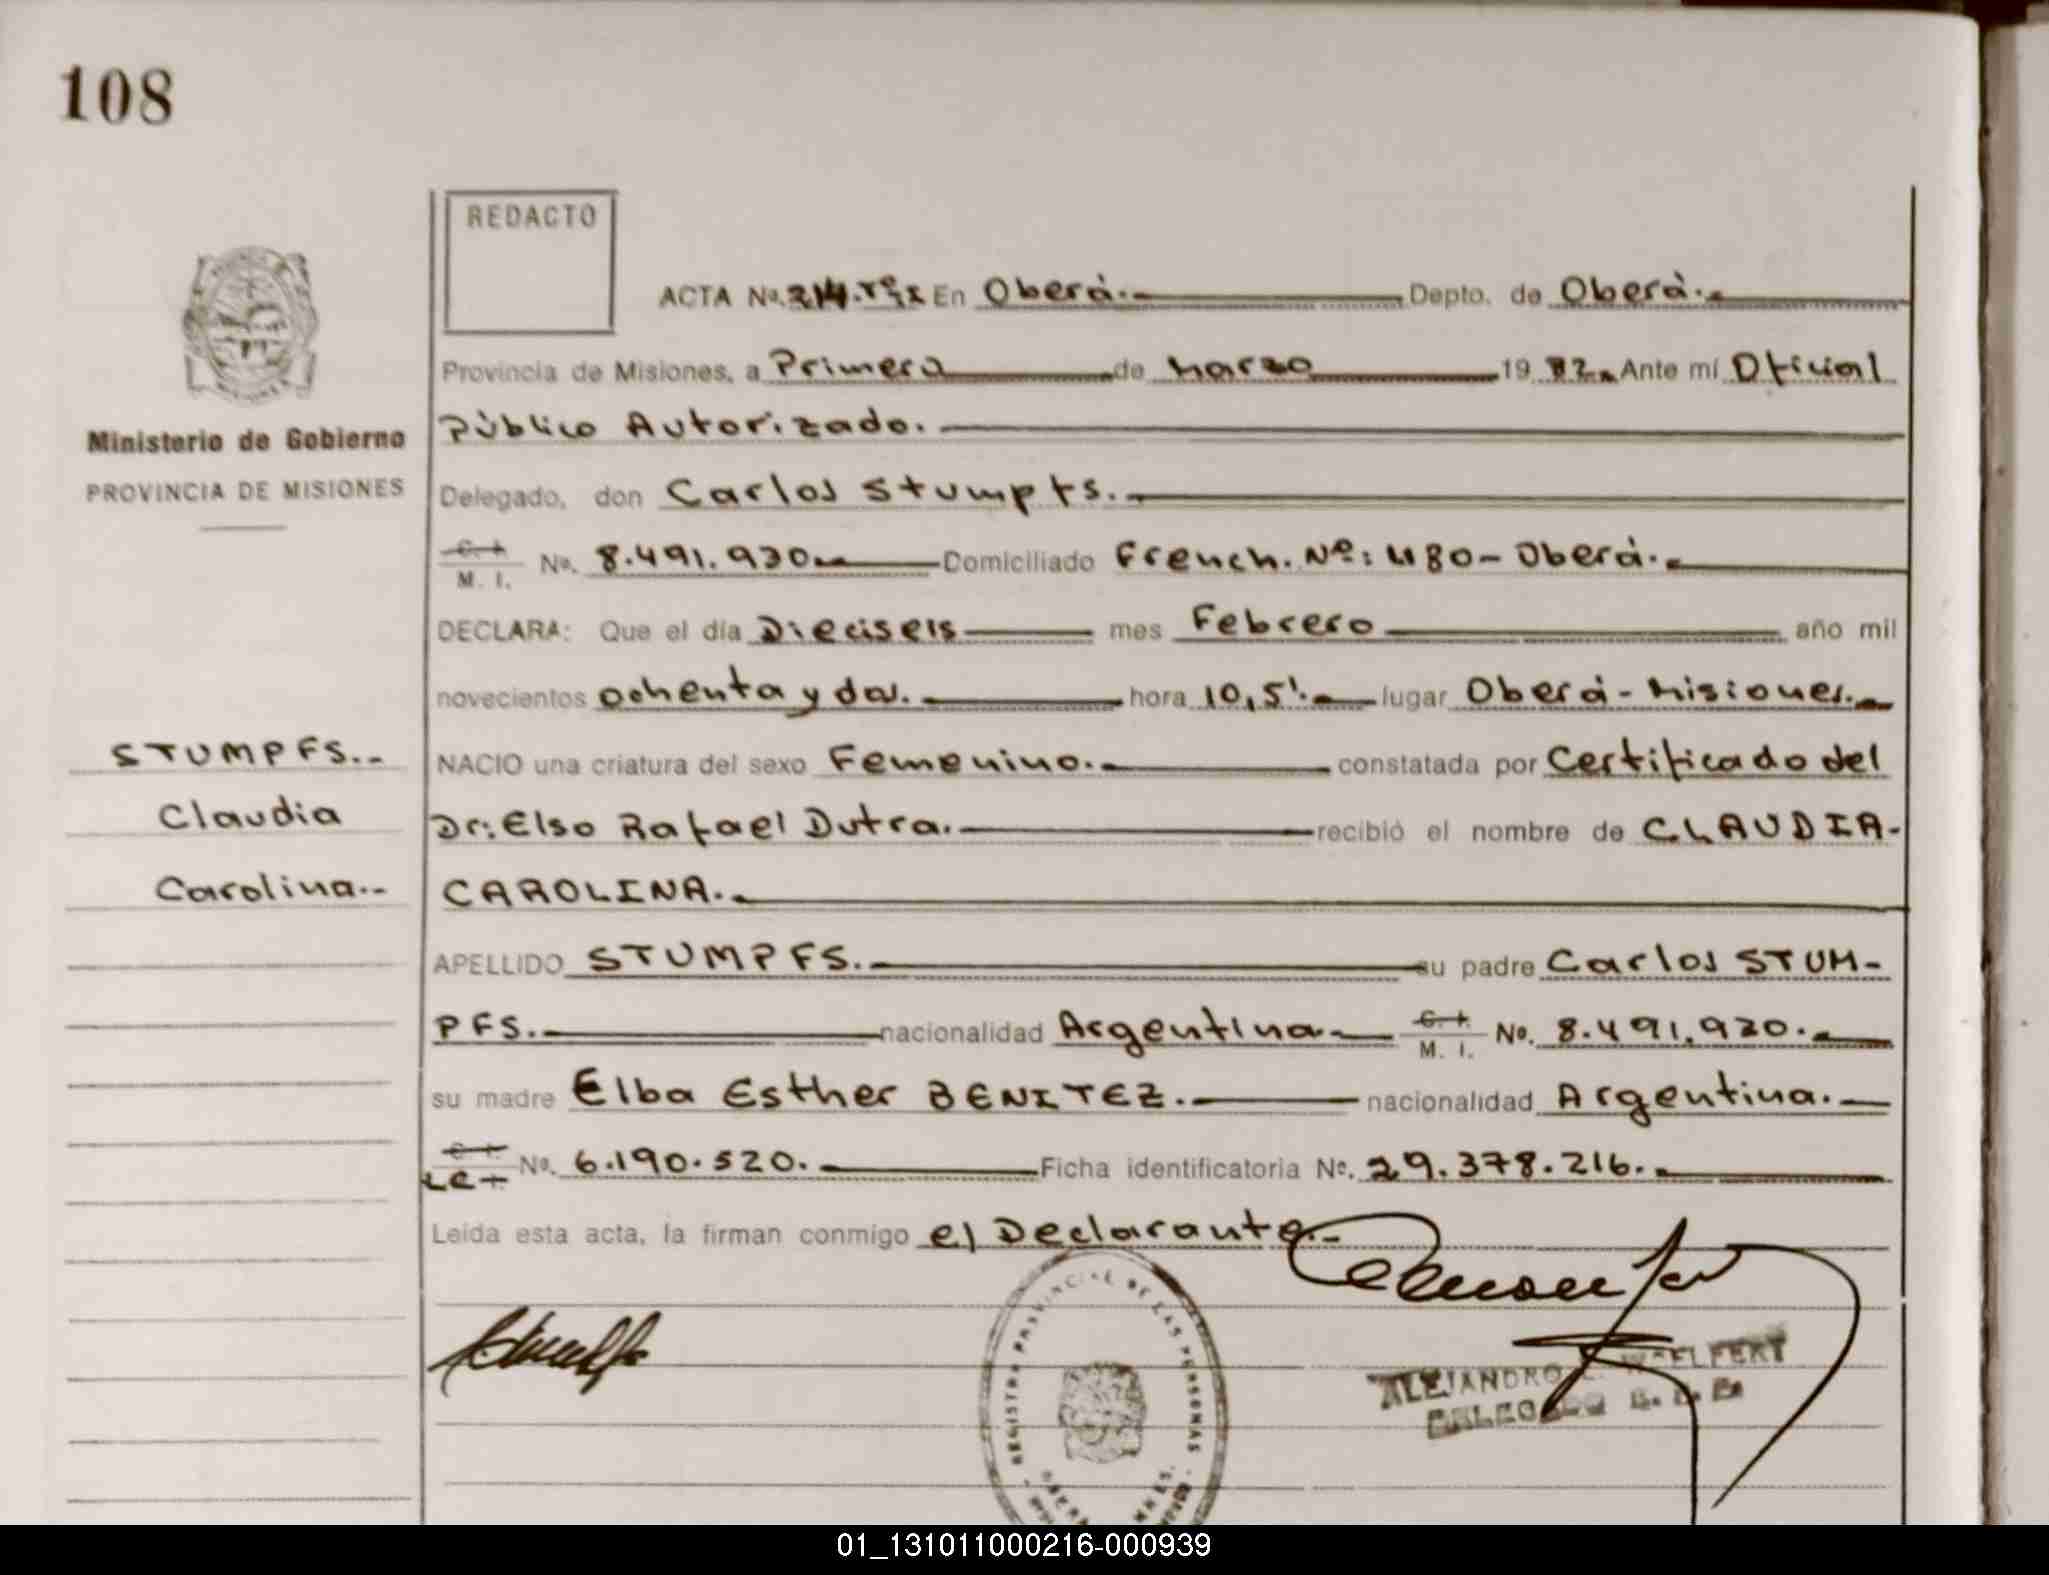 108
REDACTO
ACTA No. 214.Tº:I En Oberá.- Depto. de Oberá.-
Provincia de Misiones, a Primero de Marzo 19 82.- Ante mí Oficial
Público Autorizado.
Ministerio de Gobierno
PROVINCIA DE MISIONES
Delegado, don Carlos Stumpfs.-
C. I. M. I. No. 8.491.930.- Domiciliado French. Nº: 480- Oberá.-
DECLARA: Que el día Dieciseis mes Febrero año mil
novecientos ochenta y dos. hora 10,5'.- lugar Oberá - Misiones.-
STUMPFS.-
NACIO una criatura del sexo Femenino.- constatada por Certificado del
Claudia
Dr: Elso Rafael Dutra.- recibió el nombre de CLAUDIA-
Carolina.-
CAROLINA.-
APELLIDO STUMPFS.- su padre Carlos STUM-
PFS.- nacionalidad Argentina.- C. I. M. I. No. 8.491.930.-
su madre Elba Esther BENITEZ.- nacionalidad Argentina.-
C. I. LC+ No. 6.190.520.- Ficha identificatoria No. 29.378.216.-
Leída esta acta, la firman conmigo el Declarante.-
REGISTRO PROVINCIAL DE LAS PERSONAS
ALEJANDRO
DELEGADO
01_131011000216-000939